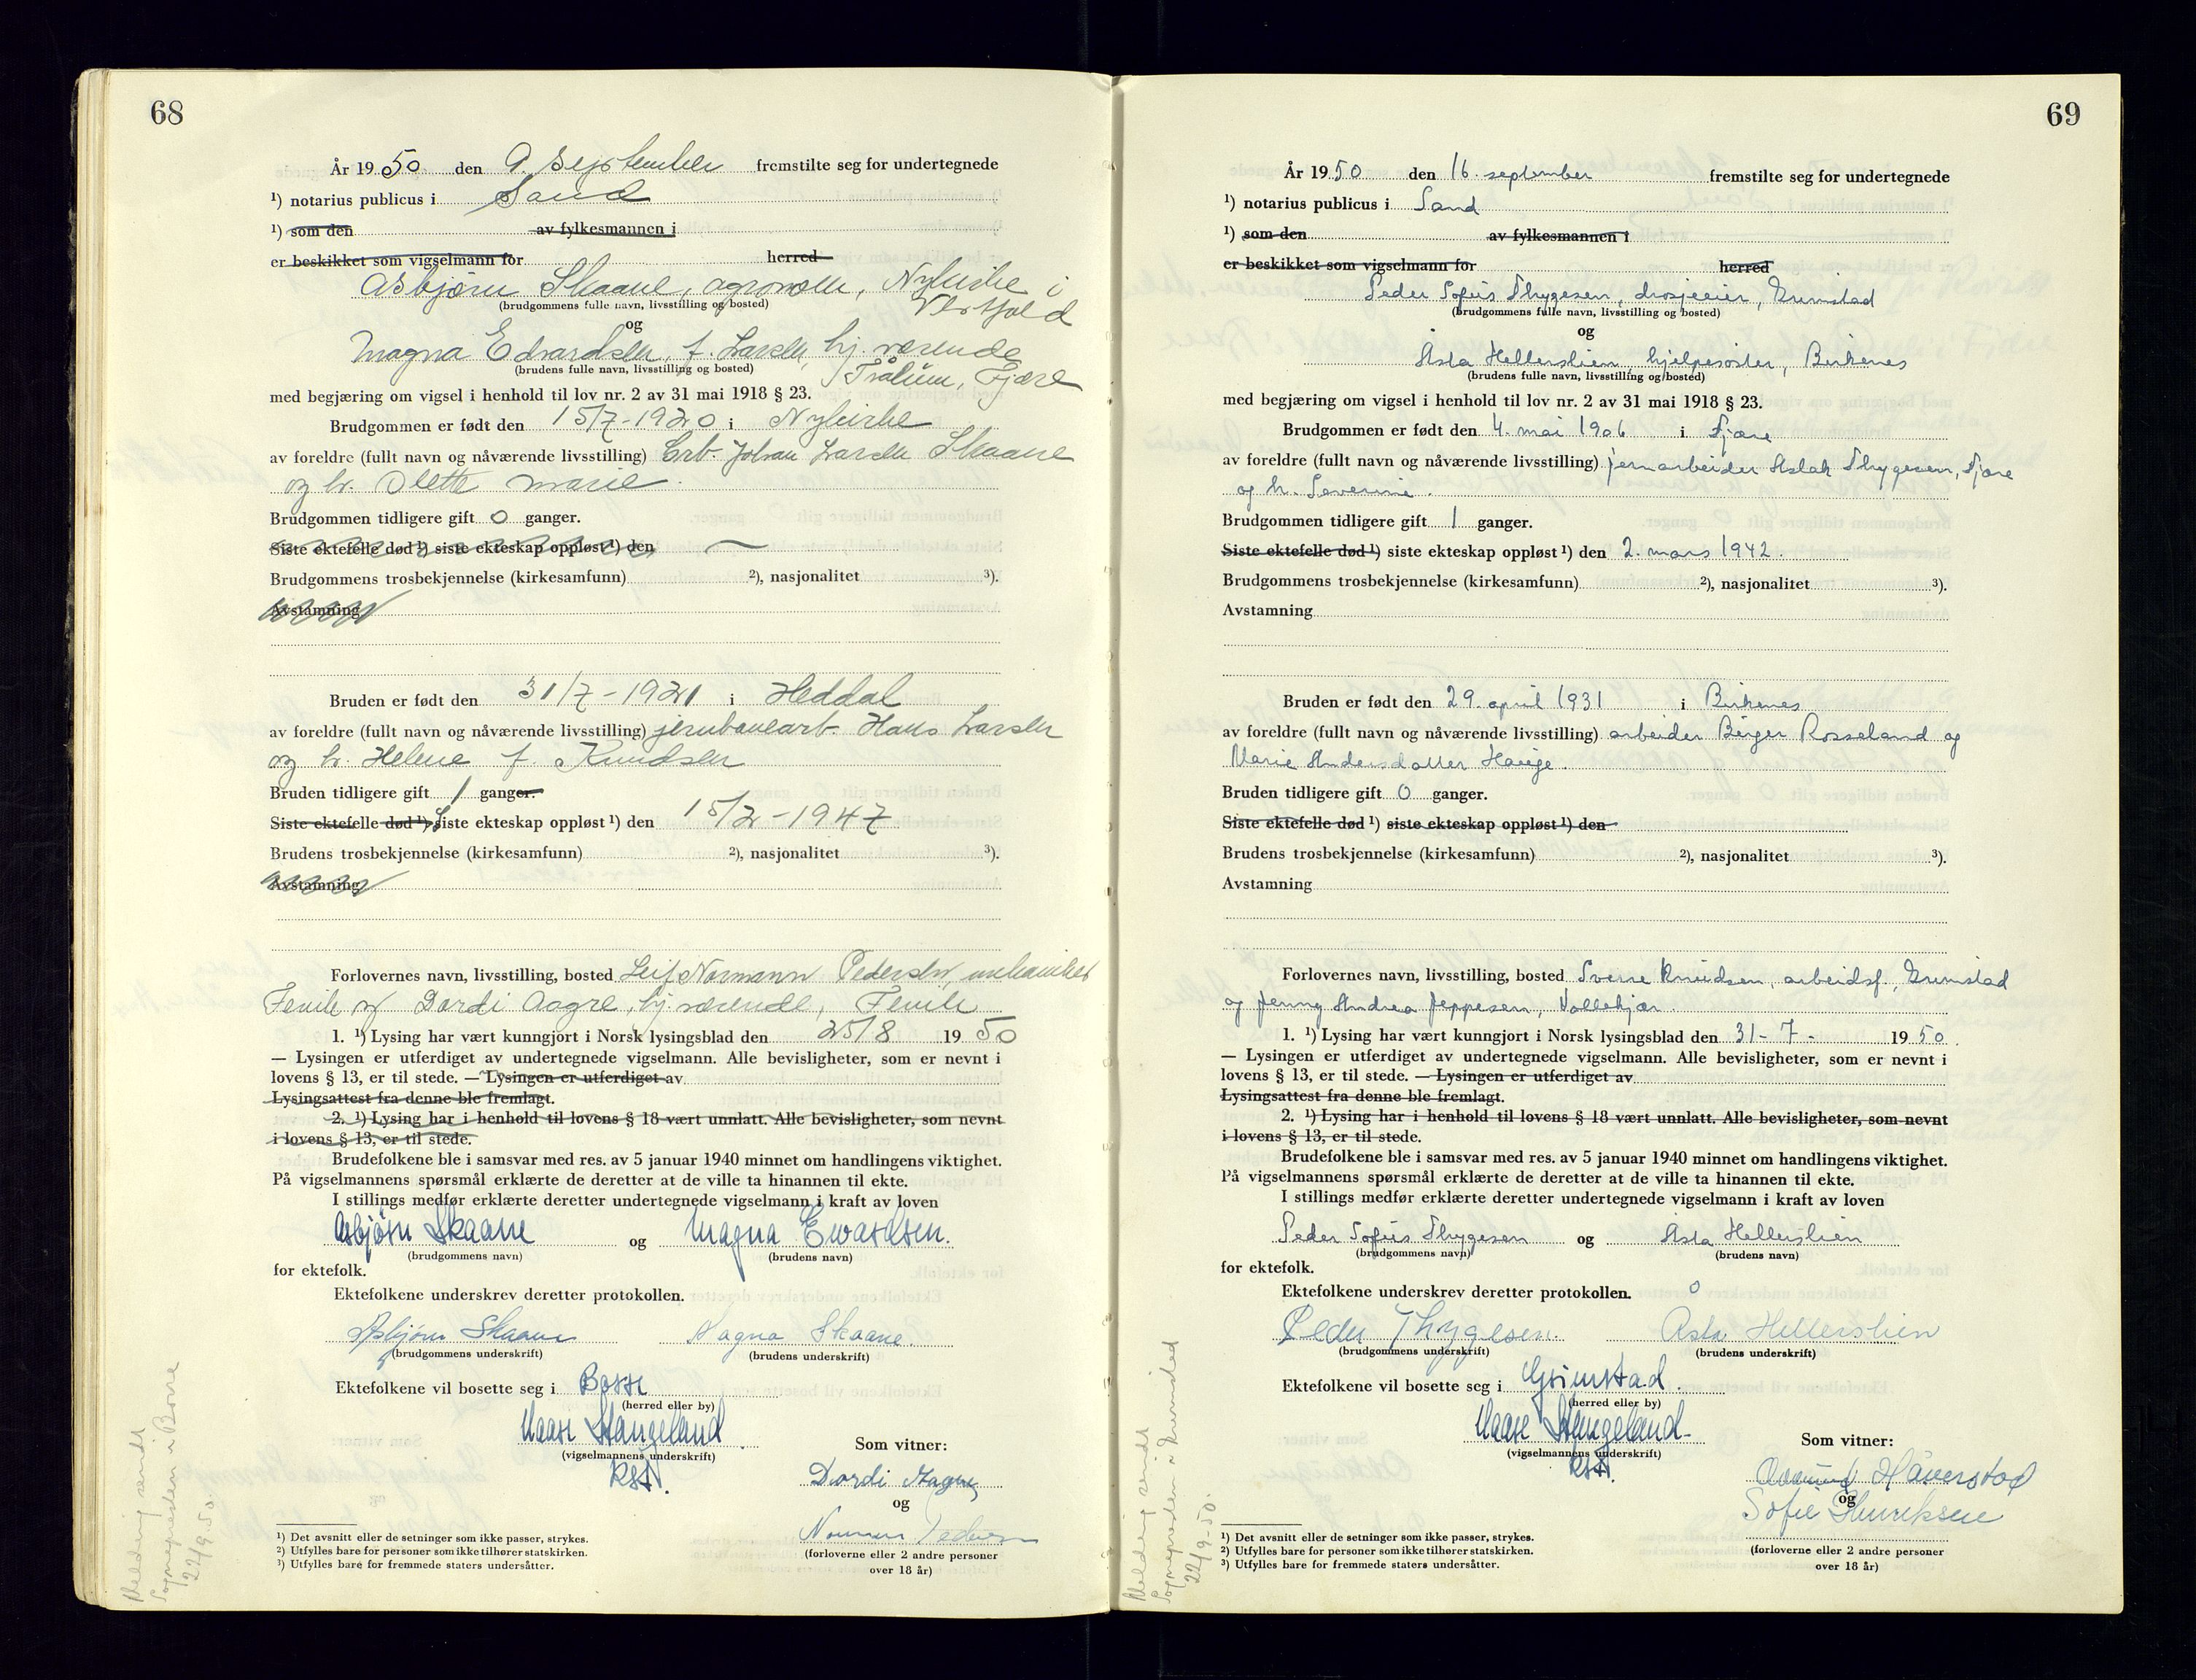 68
År 1950 den 9. September fremstilte seg for undertegnede
¹) notarius publicus i Sand
¹) som den av fylkesmannen i
er beskikket som vigselmann for herred
Asbjørn Skaane, agronom, Nykirke i
Vestfold
(brudgommens fulle navn, livsstilling og bosted)
og
Magna Edvardsen, f. Larsen, hj. værende
Trålum, Fjære
(brudens fulle navn, livsstilling og bosted)
med begjæring om vigsel i henhold til lov nr. 2 av 31 mai 1918 § 23.
Brudgommen er født den 15/7-1920 i Nykirke
av foreldre (fullt navn og nåværende livsstilling) Johan Larsen Skaane
og h. Olette Marie.
Brudgommen tidligere gift 0 ganger.
Siste ektefelle død ¹) siste ekteskap oppløst ¹) den
Brudgommens trosbekjennelse (kirkesamfunn) ²), nasjonalitet ³).
Avstamning
Bruden er født den 31/7-1921 i Heddal
av foreldre (fullt navn og nåværende livsstilling) jernbanearb. Hans Larsen
og h. Helene f. Knudsen
Bruden tidligere gift 1 ganger.
Siste ektefelle død ¹), siste ekteskap oppløst ¹) den 15/2-1947
Brudens trosbekjennelse (kirkesamfunn) ²), nasjonalitet ³).
Avstamning
Forlovernes navn, livsstilling, bosted Leif Normann Pedersen,
Fevik og Dordi Aagre, hj. værende, Fevik
1. ¹) Lysing har vært kunngjort i Norsk lysingsblad den 25/8 1950
— Lysingen er utferdiget av undertegnede vigselmann. Alle bevisligheter, som er nevnt i
lovens § 13, er til stede. — Lysingen er utferdiget av
Lysingsattest fra denne ble fremlagt.
2. ¹) Lysing har i henhold til lovens § 18 vært unnlatt. Alle bevisligheter, som nevnt
i lovens § 13, er til stede.
Brudefolkene ble i samsvar med res. av 5 januar 1940 minnet om handlingens viktighet.
På vigselmannens spørsmål erklærte de deretter at de ville ta hinannen til ekte.
I stillings medfør erklærte deretter undertegnede vigselmann i kraft av loven
Asbjörn Skaane og Magna Evardsen.
(brudgommens navn) (brudens navn)
for ektefolk.
Ektefolkene underskrev deretter protokollen.
Asbjørn Skaane Magna Skaane.
(brudgommens underskrift) (brudens underskrift)
Ektefolkene vil bosette seg i Borre
(herred eller by)
Stangeland
(vigselmannens underskrift)
Som vitner:
Dordi Aagre
og
Normann Pedersen
(forloverne eller 2 andre personer
over 18 år)
¹) Det avsnitt eller de setninger som ikke passer, strykes.
²) Utfylles bare for personer som ikke tilhører statskirken.
³) Utfylles bare for fremmede staters undersåtter.
Melding sendt
Sognepresten i Borre
22/9.50.
69
År 1950 den 16. september fremstilte seg for undertegnede
¹) notarius publicus i Sand
¹) som den av fylkesmannen i
er beskikket som vigselmann for herred
Peder Sofus Thygesen, drosjeeier, Grimstad
(brudgommens fulle navn, livsstilling og bosted)
og
Asta Hellerslien, hjelpesøster, Birkenes
(brudens fulle navn, livsstilling og bosted)
med begjæring om vigsel i henhold til lov nr. 2 av 31 mai 1918 § 23.
Brudgommen er født den 4. mai 1906 i Fjære
av foreldre (fullt navn og nåværende livsstilling) jernarbeider Aslak Thygesen, Fjære
og h. Severine.
Brudgommen tidligere gift 1 ganger.
Siste ektefelle død ¹) siste ekteskap oppløst ¹) den 2. mars 1942.
Brudgommens trosbekjennelse (kirkesamfunn) ²), nasjonalitet ³).
Avstamning
Bruden er født den 29. april 1931 i Birkenes
av foreldre (fullt navn og nåværende livsstilling) arbeider Birger Rosseland og
Marie Andersdatter Hauge.
Bruden tidligere gift 0 ganger.
Siste ektefelle død ¹) siste ekteskap oppløst ¹) den
Brudens trosbekjennelse (kirkesamfunn) ²), nasjonalitet ³).
Avstamning
Forlovernes navn, livsstilling, bosted Sverre Knudsen, arbeidsf., Grimstad
og Jenny Andrea Jeppesen, Vollekjær.
1. ¹) Lysing har vært kunngjort i Norsk lysingsblad den 31-7- 1950.
— Lysingen er utferdiget av undertegnede vigselmann. Alle bevisligheter, som er nevnt i
lovens § 13, er til stede. — Lysingen er utferdiget av
Lysingsattest fra denne ble fremlagt.
2. ¹) Lysing har i henhold til lovens § 18 vært unnlatt. Alle bevisligheter, som nevnt
i lovens § 13, er til stede.
Brudefolkene ble i samsvar med res. av 5 januar 1940 minnet om handlingens viktighet.
På vigselmannens spørsmål erklærte de deretter at de ville ta hinannen til ekte.
I stillings medfør erklærte deretter undertegnede vigselmann i kraft av loven
Peder Sofus Thygesen og Asta Hellerslien
(brudgommens navn) (brudens navn)
for ektefolk.
Ektefolkene underskrev deretter protokollen.
Peder Thygesen. Asta Hellerslien
(brudgommens underskrift) (brudens underskrift)
Ektefolkene vil bosette seg i Grimstad.
(herred eller by)
Stangeland
(vigselmannens underskrift)
Som vitner:
Håverstad
og
Sofie Henriksen
(forloverne eller 2 andre personer
over 18 år)
¹) Det avsnitt eller de setninger som ikke passer, strykes.
²) Utfylles bare for personer som ikke tilhører statskirken.
³) Utfylles bare for fremmede staters undersåtter.
Melding sendt
Sognepresten i Grimstad
22/9-50.